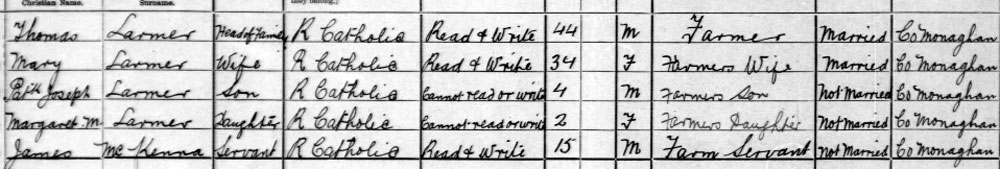 Christian Name. Surname. they belong.)
Thomas Larmer Head of Family R Catholic Read & Write 44 M Farmer Married Co Monaghan
Mary Larmer Wife R Catholic Read & Write 34 F Farmers Wife Married Co Monaghan
Patk Joseph Larmer Son R Catholic Cannot read or write 4 M Farmers Son Not Married Co Monaghan
Margaret M Larmer Daughter R Catholic Cannot read or write 2 F Farmers Daughter Not Married Co Monaghan
James Mc Kenna Servant R Catholic Read & Write 15 M Farm Servant Not Married Co Monaghan